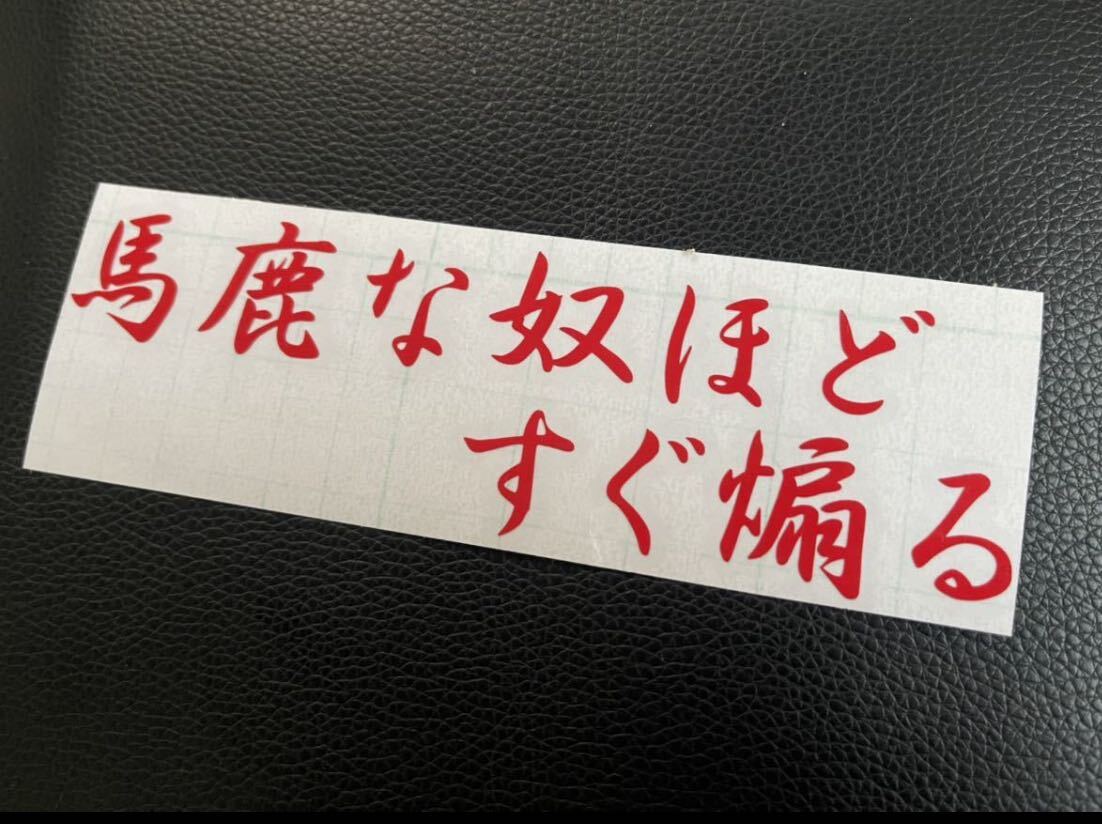 馬鹿な奴ほど
すぐ煽る